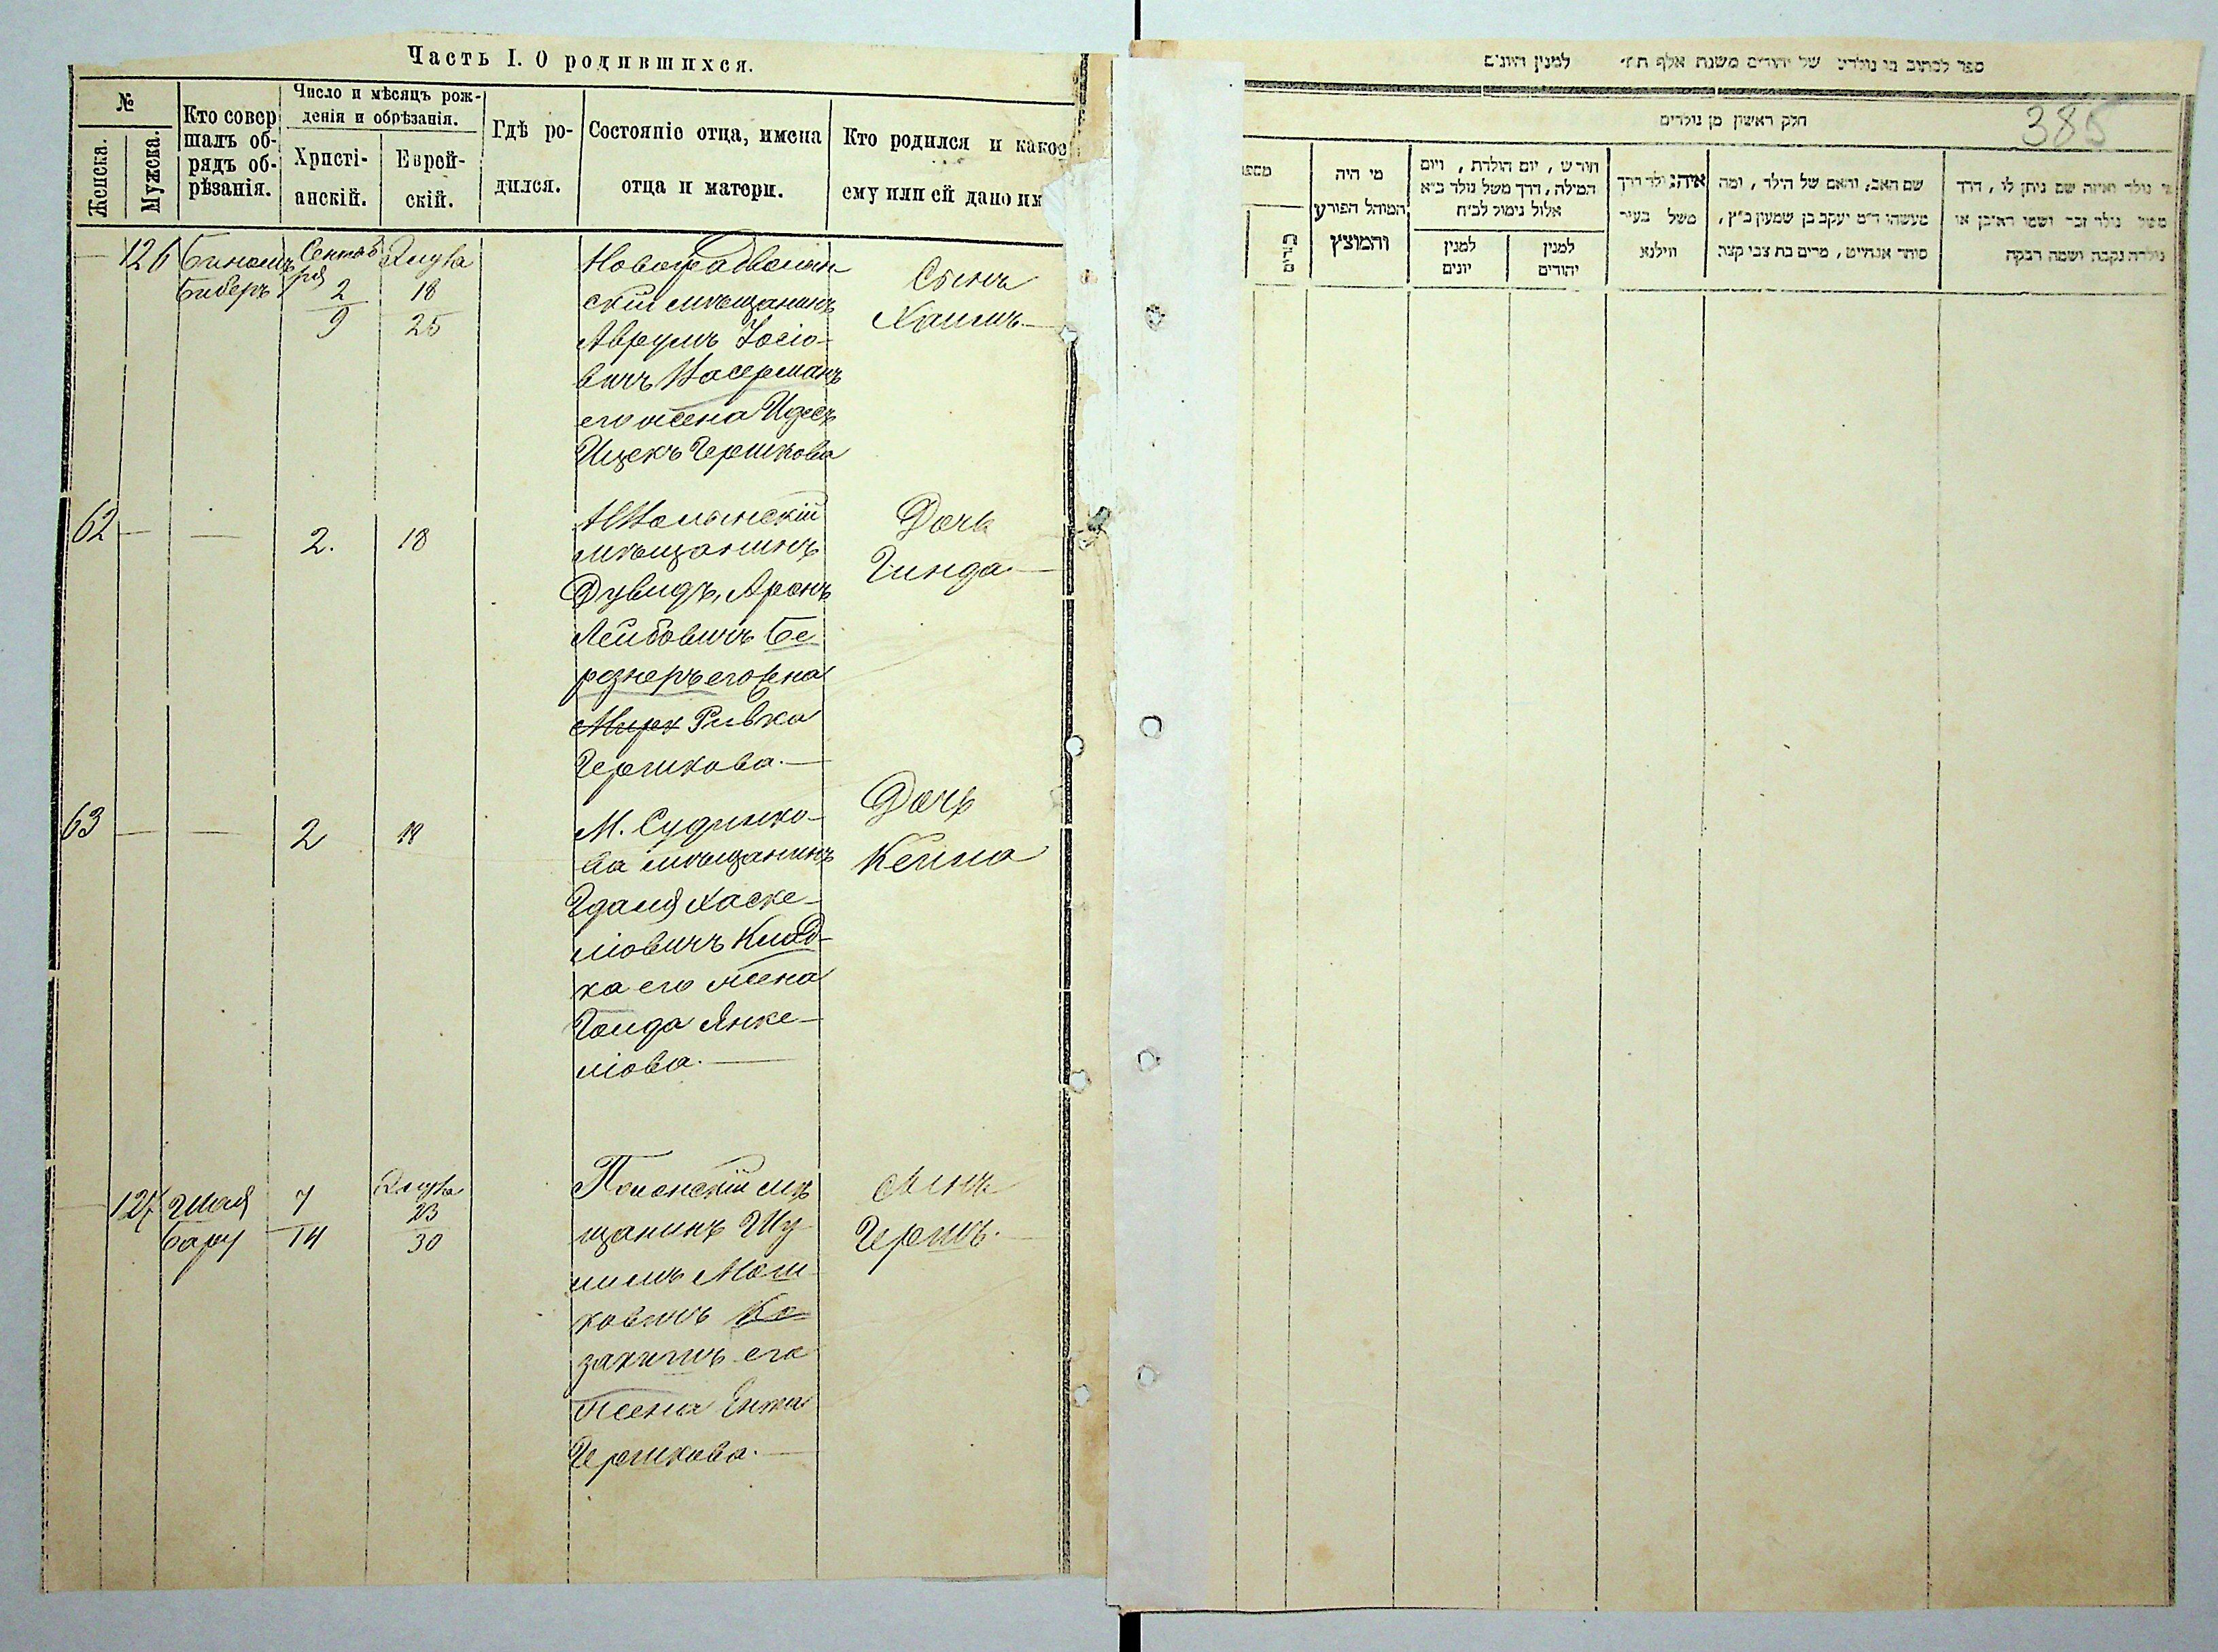 Часть I. О родившихся.
№
Женска.
Мужска.
Кто совер
шалъ об-
рядъ об-
рѣзанія.
Число и мѣсяцъ рож-
денія и обрѣзанія.
Христі-
анскій.
Еврей-
скій.
Гдѣ ро-
дился.
Состояніе отца, имена
отца и матери.
Кто родился и какое
ему или ей дано им
— 126
Биномъ
Биберъ
Сентяб
ря
2
9
Элула
18
25
Новоградволын
скій мѣщанинъ
Аврумъ Іосіо-
вичъ
его жена
Ицекъ Гершкова
Сынъ
Хаимъ —
62 — —
2.
18
НВолынскій
мѣщанинъ
Дувидъ, Аронъ
Лейбовичъ Бе
рознеръ его жена
Мирх Ривка
Гершкова. —
Дочь
Гинда. —
63 — —
2
18
М. Судилко-
ва мѣщанинъ
Гдаля Хаске-
ліовичъ
ка его жена
Голда Янке-
ліова. —
Дочь
Кейла
— 127
Шая
Бару
7
14
Элула
23
30
Полонскій мѣ
щанинъ Шу
лимъ Мош
ковичъ Ко
его
жена Ента
Гершкова. —
Сынъ
Гершъ. —
ספר לכתוב בו נולדים של יהודים משנת אלף תת״ למנין היונים
385
חלק ראשון מן נולדים
מספר
זכרים
מי היה
המוהל הפורע
והמוצץ
חודש, יום הולדת, ויום
המילה, דרך משל נולד כ״א
אלול נימול לכ״ח
למנין
יונים
למנין
יהודים
איה נולד דרך
משל בעיר
ווילנא
שם האב, והאם של הילד, ומה
מעשהו ד״מ יעקב בן שמעון כ״ץ,
סוחר אנהייט, מרים בת צבי קצב
מי נולד ואיזה שם ניתן לו, דרך
משל נולד זכר ושמו ראובן או
נולדה נקבה ושמה רבקה